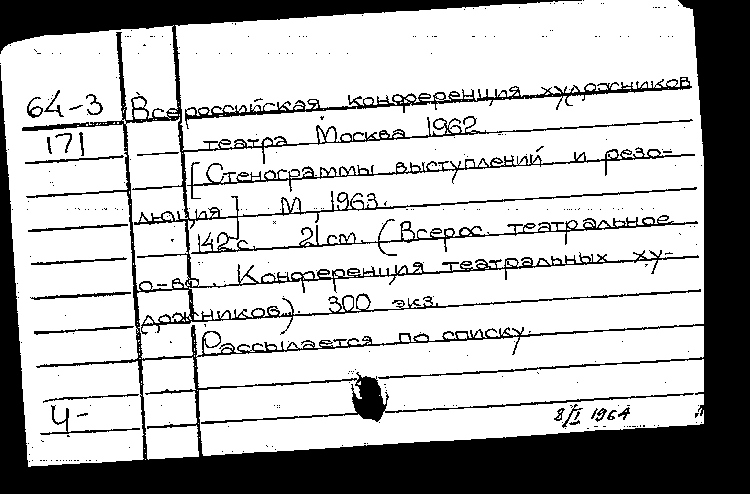 64-3 Всероссийская конференция художников
171 театра Москва 1962
[Стенограммы выступлений и резо-
люция] М, 1963.
142 с. 21 см. (Всерос. театральное
о-во. Конференция театральных ху-
дожников). 300 экз.
Рассылается по списку.
Ч-
8/I 1964